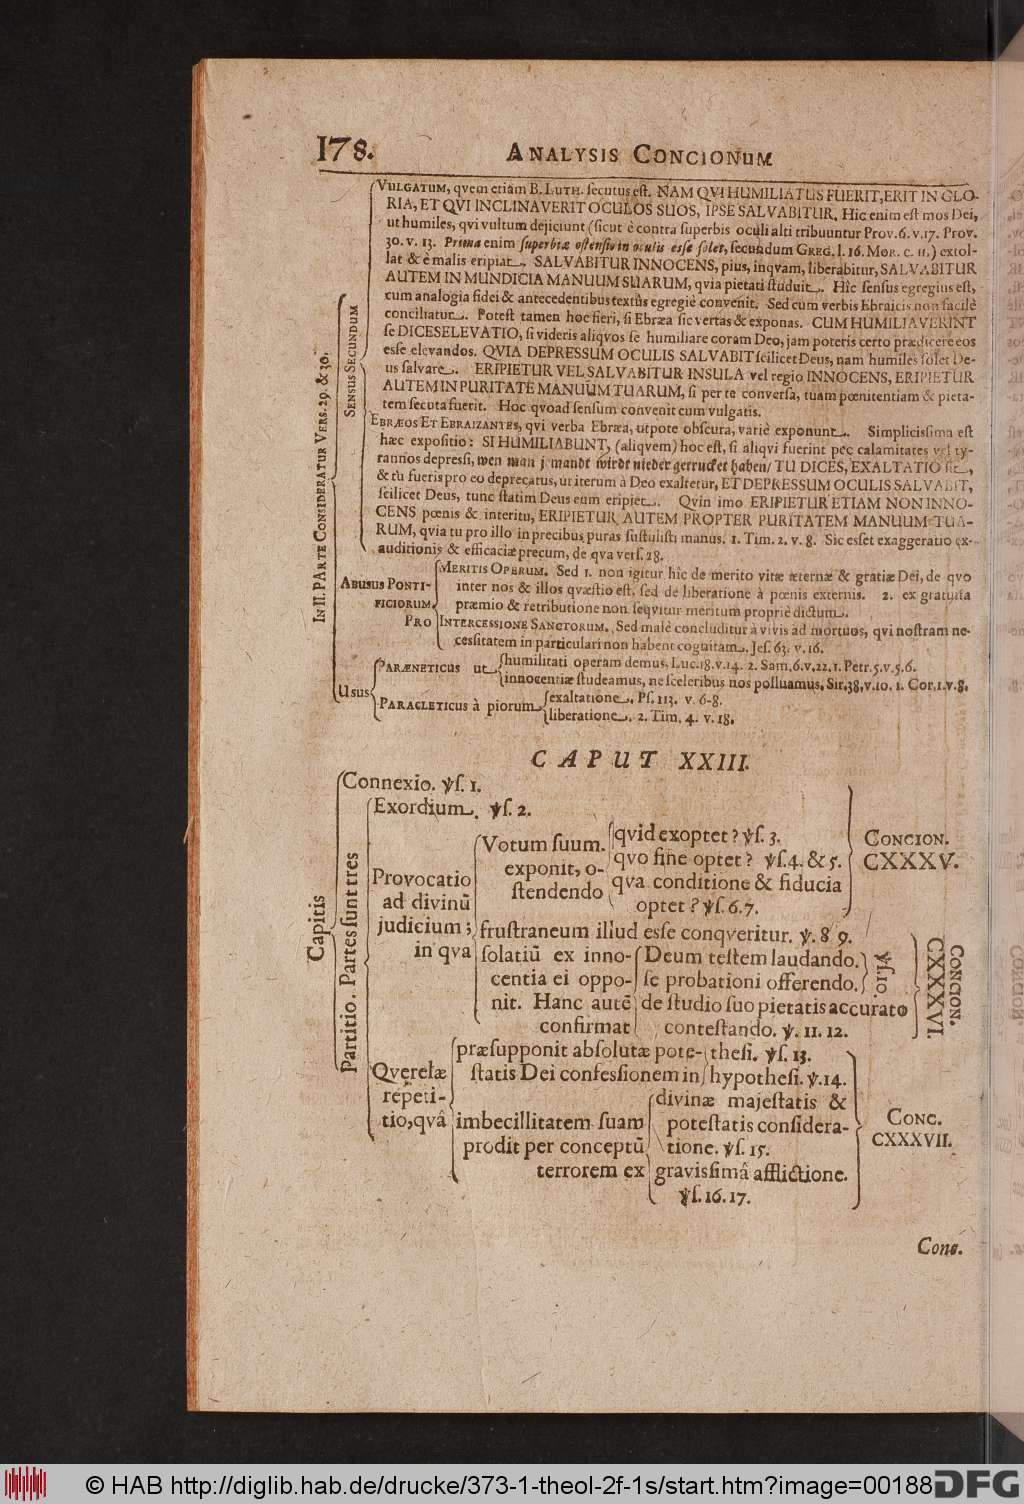 178.
ANALYSIS CONCIONUM
IN II. PARTE CONSIDERATUR VERS. 29. & 30.
SENSUS SECUNDUM
VULGATUM, qvem etiam B. LUTH. secutus est. NAM QVI HUMILIATUS FUERIT, ERIT IN GLO-
RIA, ET QVI INCLINAVERIT OCULOS SUOS, IPSE SALVABITUR. Hic enim est mos Dei,
ut humiles, qvi vultum dejiciunt (sicut è contra superbis oculi alti tribuuntur Prov. 6. v. 17. Prov.
30. v. 13. Prima enim superbiæ ostensio in oculis esse solet, secundum GREG. l. 16. MOR. c. 11.) extol-
lat & è malis eripiat. SALVABITUR INNOCENS, pius, inqvam, liberabitur, SALVABITUR
AUTEM IN MUNDICIA MANUUM SUARUM, qvia pietati studuit. Hîc sensus egregius est,
cum analogia fidei & antecedentibus textûs egregiè convenit. Sed cum verbis Ebraicis non facilè
conciliatur. Potest tamen hoc fieri, si Ebræa sic vertas & exponas. CUM HUMILIAVERINT
se DICES ELEVATIO, si videris aliqvos se humiliare coram Deo, jam poteris certo prædicere eos
esse elevandos. QVIA DEPRESSUM OCULIS SALVABIT scilicet Deus, nam humiles solet De-
us salvare. ERIPIETUR VEL SALVABITUR INSULA vel regio INNOCENS, ERIPIETUR
AUTEM IN PURITATE MANUUM TUARUM, si per te conversa, tuam pœnitentiam & pieta-
tem secuta fuerit. Hoc qvoad sensum convenit cum vulgatis.
EBRÆOS ET EBRAIZANTES, qvi verba Ebræa, utpote obscura, variè exponunt. Simplicissima est
hæc expositio: SI HUMILIABUNT, (aliqvem) hoc est, si aliqvi fuerint per calamitates vel ty-
rannos depressi, wen man jemandt wirdt nieder getrucket haben/ TU DICES, EXALTATIO sit,
& tu fueris pro eo deprecatus, ut iterum à Deo exaltetur, ET DEPRESSUM OCULIS SALVABIT,
scilicet Deus, tunc statim Deus eum eripiet. Qvin imo ERIPIETUR ETIAM NON INNO-
CENS pœnis & interitu, ERIPIETUR AUTEM PROPTER PURITATEM MANUUM TUA-
RUM, qvia tu pro illo in precibus puras sustulisti manus. 1. Tim. 2. v. 8. Sic esset exaggeratio ex-
auditionis & efficaciæ precum, de qva vers. 28.
ABUSUS PONTI-
FICIORUM,
PRO
MERITIS OPERUM. Sed 1. non igitur hîc de merito vitæ æternæ & gratiæ Dei, de qvo
inter nos & illos qvæstio est, sed de liberatione à pœnis externis. 2. ex gratuita
præmio & retributione non seqvitur meritum propriè dictum.
INTERCESSIONE SANCTORUM. Sed malè concluditur à vivis ad mortuos, qvi nostram ne-
cessitatem in particulari non habent cognitam. Jes. 63. v. 16.
USUS
PARÆNETICUS ut
humilitati operam demus, Luc. 18. v. 14. 2. Sam. 6. v. 22, 1. Petr. 5. v. 5. 6.
innocentiæ studeamus, ne sceleribus nos polluamus, Sir. 38. v. 10. 1. Cor. 1. v. 8.
PARACLETICUS à piorum
exaltatione. Ps. 113. v. 6-8.
liberatione. 2. Tim. 4. v. 18.
CAPUT XXIII.
Capitis
Connexio. ꝟs. 1.
Partitio. Partes sunt tres
Exordium. ꝟs. 2.
Provocatio
ad divinũ
judicium;
in qva
Votum suum
exponit, o-
stendendo
qvid exoptet? ꝟs. 3.
qvo fine optet? ꝟs. 4. & 5.
qva conditione & fiducia
optet? ꝟs. 6. 7.
CONCION.
CXXXV.
frustraneum illud esse conqveritur. ꝟ. 8 9.
solatiũ ex inno-
centia ei oppo-
nit. Hanc autẽ
confirmat
Deum testem laudando.
se probationi offerendo.
ꝟs. 10
de studio suo pietatis accurato
contestando. ꝟ. 11. 12.
CONCION.
CXXXVI.
Qverelæ
repeti-
tio, qvâ
præsupponit absolutæ pote-
statis Dei confessionem in
thesi. ꝟs. 13.
hypothesi. ꝟ. 14.
imbecillitatem suam
prodit per conceptũ
terrorem ex
divinæ majestatis &
potestatis considera-
tione. ꝟs. 15.
gravissimâ afflictione.
ꝟs. 16. 17.
CONC.
CXXXVII.
Conc.
© HAB http://diglib.hab.de/drucke/373-1-theol-2f-1s/start.htm?image=00188
DFG